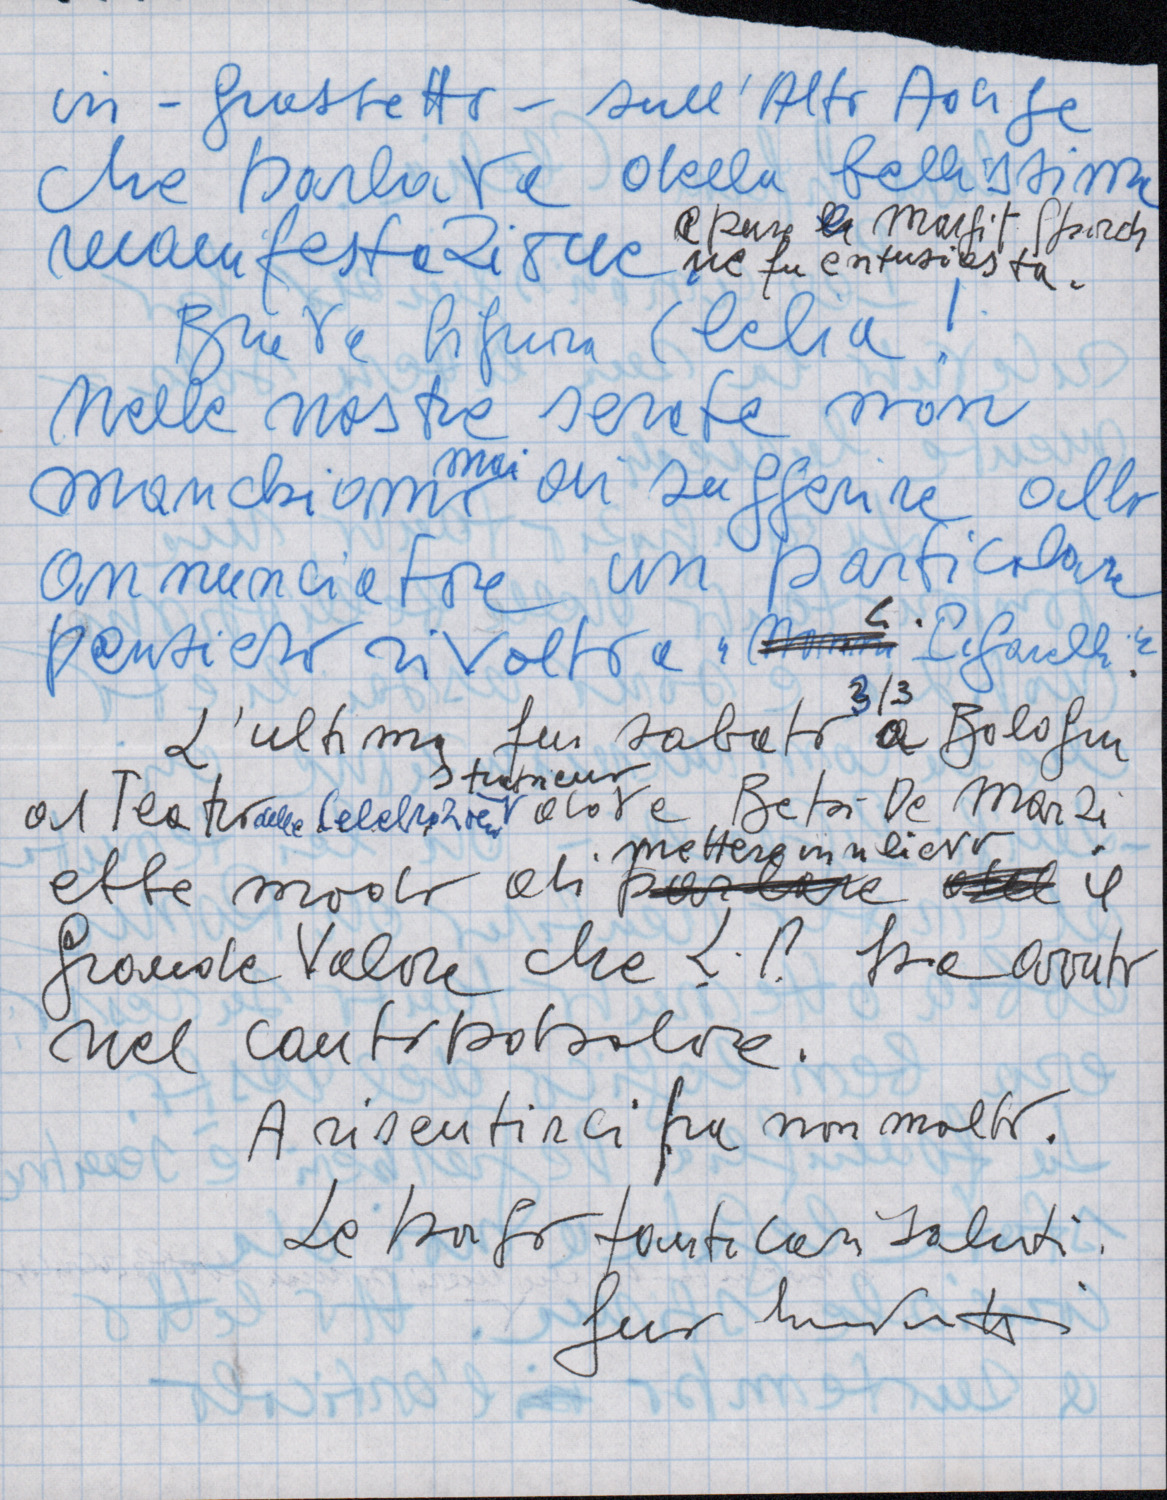 in - grassetto - sull'Alto Adige
che parlava della bellissima
manifestazione e pure la Margit Sparch
ne fu entusiasta.
Brava Signora Clelia!
Nelle nostre serate non
manchiamo mai di suggerire allo
annunciatore un particolare
pensiero rivolto a "L. Pigarelli".
L'ultima fu sabato 3/3 a Bologna
al Teatro delle Celebrazioni strapieno dove Bepi De Marzi
ebbe modo di mettere in rilievo il
grande valore che L.P. ha avuto
nel canto popolare.
A risentirci fra non molto.
Le porgo tanti cari saluti.